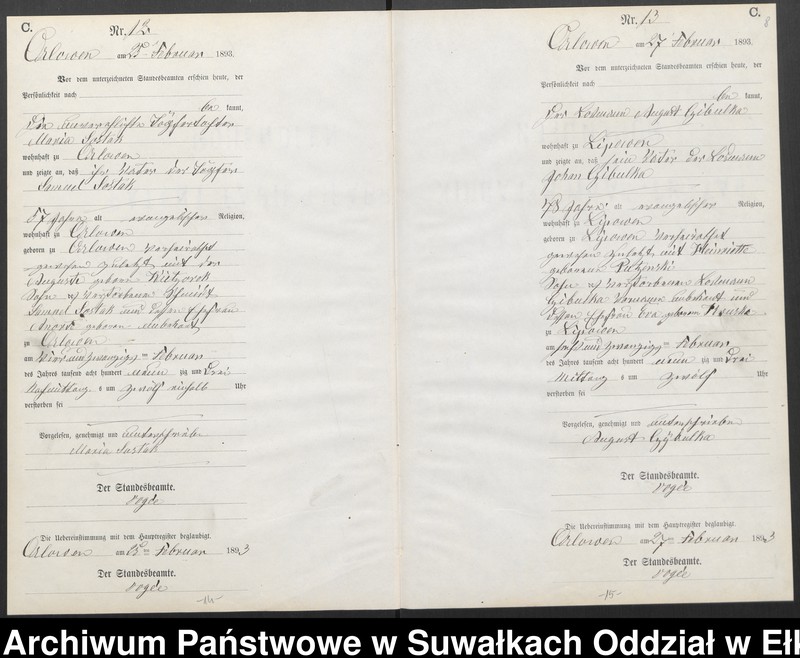 C.
Nr. 12
Orlowen am 25 Februar 1893.
Vor dem unterzeichneten Standesbeamten erschien heute, der
Persönlichkeit nach
be kannt,
die unverehelichte Töpfertochter
Maria Sostak
wohnhaft zu Orlowen
und zeigte an, daß ihr Vater der Töpfer
Samuel Sostak
57 Jahre alt evangelischer Religion,
wohnhaft zu Orlowen
geboren zu Orlowen verheirathet
gewesen zuletzt mit der
Auguste geboren
Sohn des verstorbenen Schmidt
Samuel Sostak und dessen Ehefrau
geboren unbekannt
zu Orlowen
am vier und zwanzigsten Februar
des Jahres tausend acht hundert neun zig und drei
Nachmittags um zwölf einhalb Uhr
verstorben sei
Vorgelesen, genehmigt und unterschrieben
Maria Sostak
Der Standesbeamte.
Die Uebereinstimmung mit dem Hauptregister beglaubigt.
Orlowen am 25ten Februar 1893
Der Standesbeamte.
-14-
C.
8
Nr. 13
Orlowen am 27 Februar 1893.
Vor dem unterzeichneten Standesbeamten erschien heute, der
Persönlichkeit nach
be kannt,
der Losmann August Czibulka
wohnhaft zu Lipowen
und zeigte an, daß sein Vater der Losmann
Johan Czibulka
78 Jahre alt evangelischer Religion,
wohnhaft zu Lipowen
geboren zu Lipowen verheirathet
gewesen zuletzt mit Heinriette
geborene
Sohn des verstorbenen Losmann
Czibulka Vorname unbekannt und
dessen Ehefrau Eva geborene
zu Lipowen
am sechs und zwanzigsten Februar
des Jahres tausend acht hundert neun zig und drei
Mittags um zwölf Uhr
verstorben sei
Vorgelesen, genehmigt und unterschrieben
August Czybulka
Der Standesbeamte.
Die Uebereinstimmung mit dem Hauptregister beglaubigt.
Orlowen am 27ten Februar 1893
Der Standesbeamte.
-15-
Archiwum Państwowe w Suwałkach Oddział w Ełk